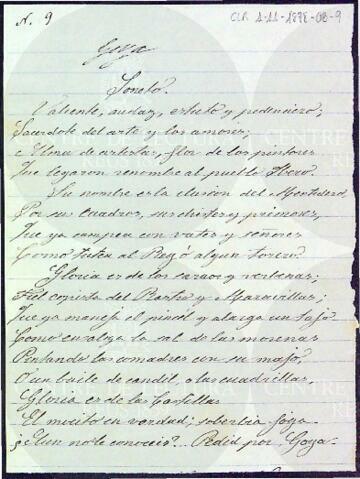 N. 9
CLR 1-11-1898-08-9
Goya
Soneto.
Valiente, audaz, astuto y pendenciero,
Sacerdote del arte y los amores;
Alma de artista, flor de los pintores
Que legaron renombre al pueblo Ibero.
Su nombre es la ilusion del Mentidero,
Por sus cuadros, sus chistes y primores,
Que ya campea con vates y señores
Como tutea al Regó algun torero.
Gloria es de los saraos y verbenas;
Fiel copista del Rastro y Maravillas;
Que ya maneja el pincel y alarga un tajo
Como envalga la sal de las morenas
Pintando las comadres con su majo,
O un baile de candil o las cuadrillas,
Gloria es de las Casillas
El mocito en verdad; soberbia joya
¿Aun no le conoceis?... Pedid por Goya.